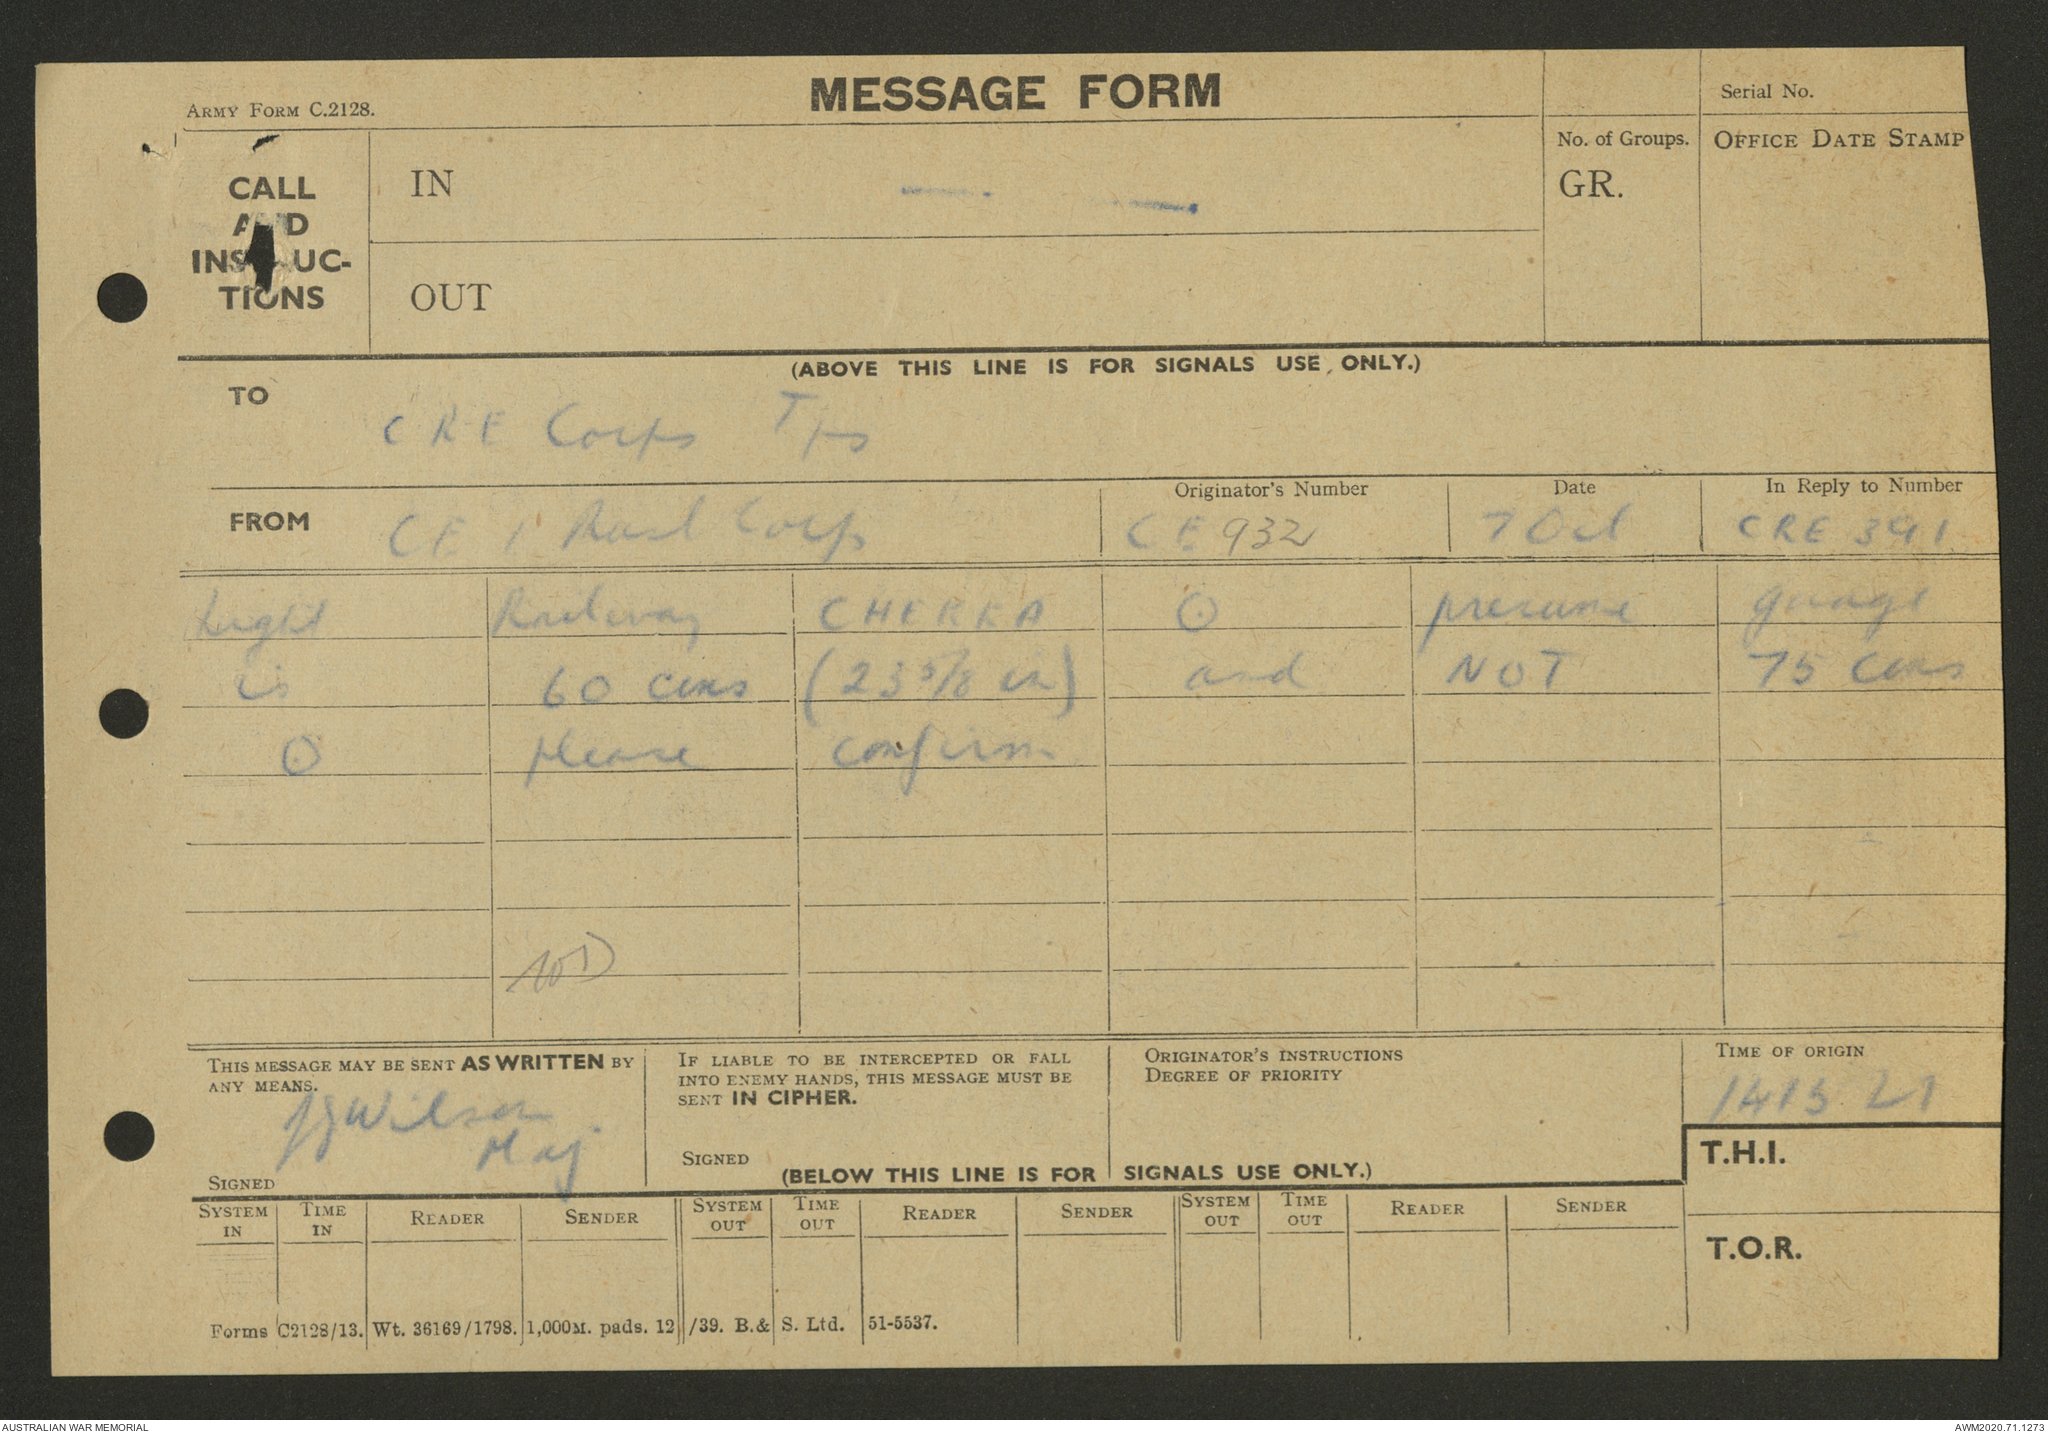 MESSAGE FORM
Army Form C.2128.
Serial No.
CALL AND INSTRUCTIONS
IN
OUT
No. of Groups.
GR.
OFFICE DATE STAMP
(ABOVE THIS LINE IS FOR SIGNALS USE ONLY.)
TO
CRE Corps Tps
FROM
CE 1 Aust Corps
Originator's Number
CE 932
Date
7 Oct
In Reply to Number
CRE 391
Light Railway CHEKKA O presume guage
is 60 cms (23 5/8 in) and NOT 75 cms
O please confirm
This message may be sent AS WRITTEN by any means.
Wilson
Maj
Signed
If liable to be intercepted or fall into enemy hands, this message must be sent IN CIPHER.
Signed
Originator's Instructions
Degree of Priority
Time of Origin
1415
T.H.I.
T.O.R.
(BELOW THIS LINE IS FOR SIGNALS USE ONLY.)
System In Time In Reader Sender System Out Time Out Reader Sender System Out Time Out Reader Sender
Forms C2128/13. Wt. 36169/1798. 1,000M. pads. 12/39. B.& S. Ltd. 51-5537.
AUSTRALIAN WAR MEMORIAL
AWM2020.71.1273